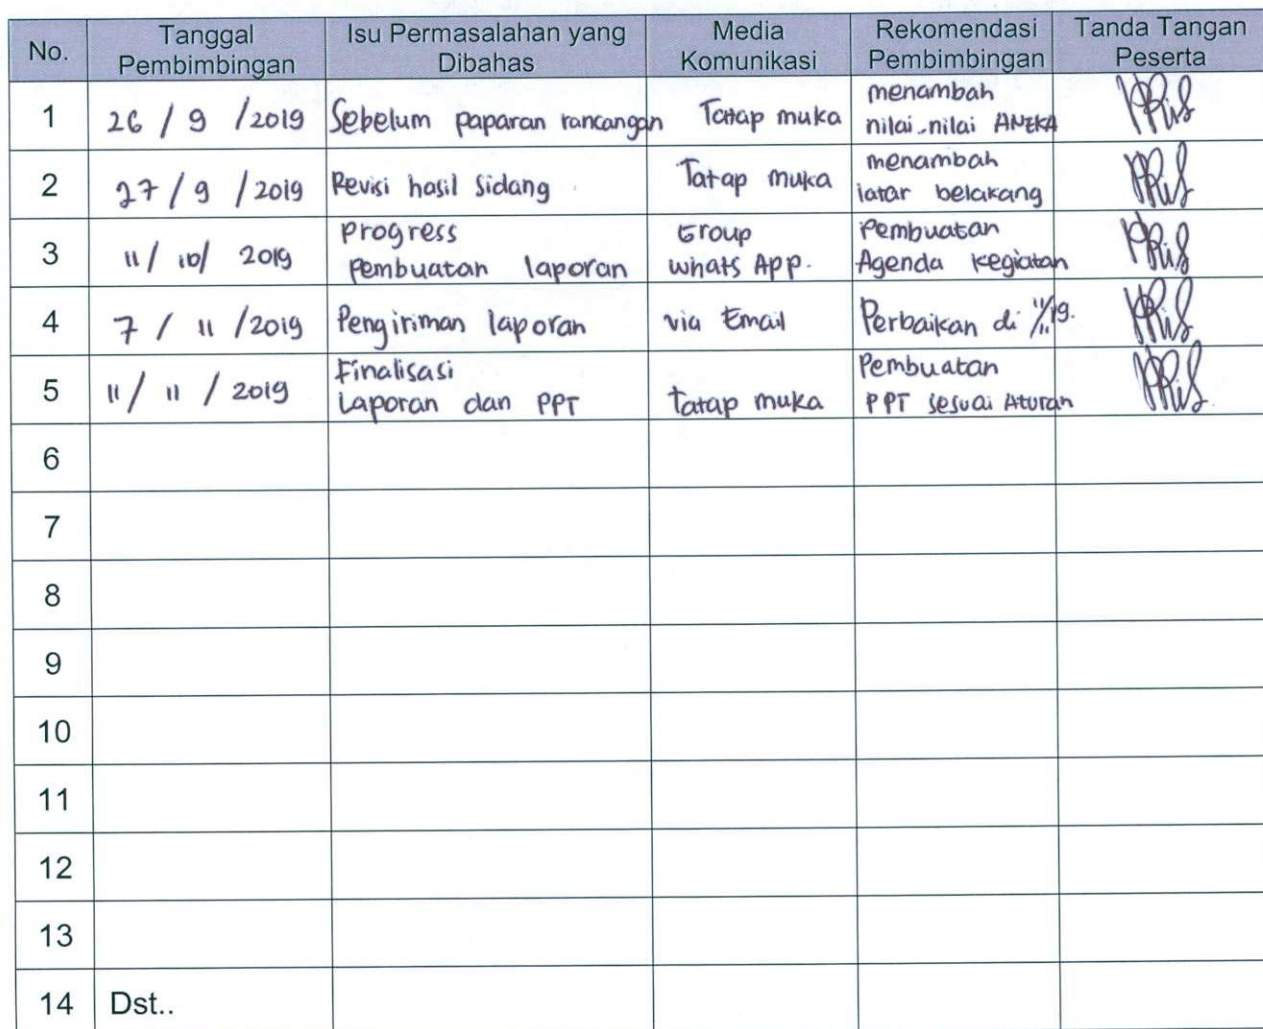 No.
Tanggal
Pembimbingan
Isu Permasalahan yang
Dibahas
Media
Komunikasi
Rekomendasi
Pembimbingan
Tanda Tangan
Peserta
1
26 / 9 / 2019
Sebelum paparan rancangan
Tatap muka
menambah
nilai-nilai ANEKA
2
27 / 9 / 2019
Revisi hasil Sidang
Tatap muka
menambah
latar belakang
3
11 / 10 / 2019
Progress
Pembuatan laporan
Group
Whats App.
Pembuatan
Agenda kegiatan
4
7 / 11 / 2019
Pengiriman laporan
via Email
Perbaikan di 11/11/19.
5
11 / 11 / 2019
Finalisasi
Laporan dan PPT
tatap muka
Pembuatan
PPT sesuai Aturan
6
7
8
9
10
11
12
13
14
Dst..